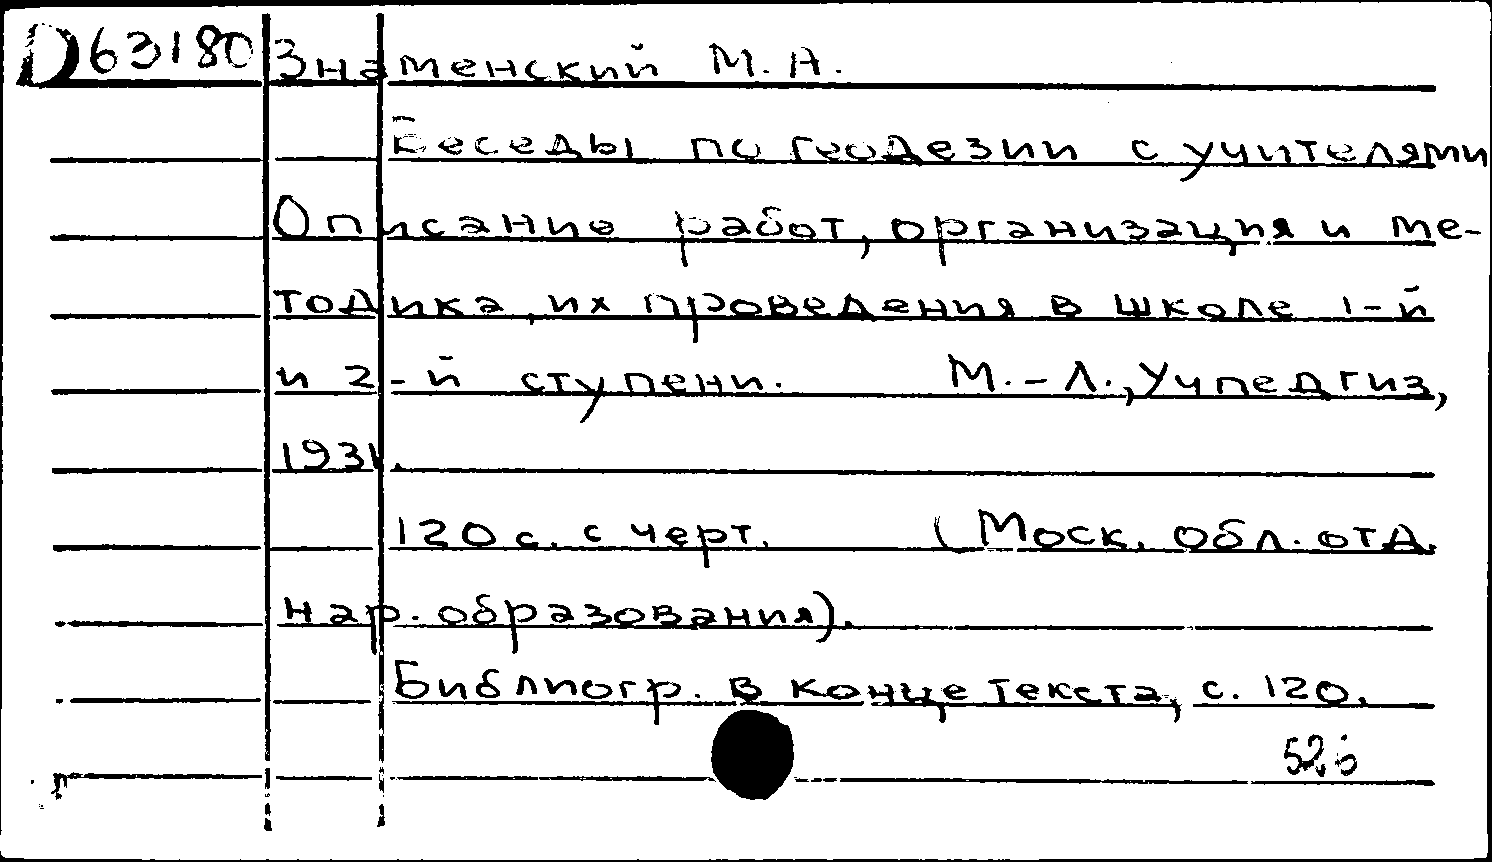 D63180 Знаменский М. А.
Беседы по геодезии с учителями
Описание работ, организация и ме-
тодика, их проведения в школе 1-й
и 2-й ступени. М.-Л., Учпедгиз,
1931.
120 с. с черт. (Моск. обл. отд.
нар. образования).
Библиогр. в конце текста, с. 120.